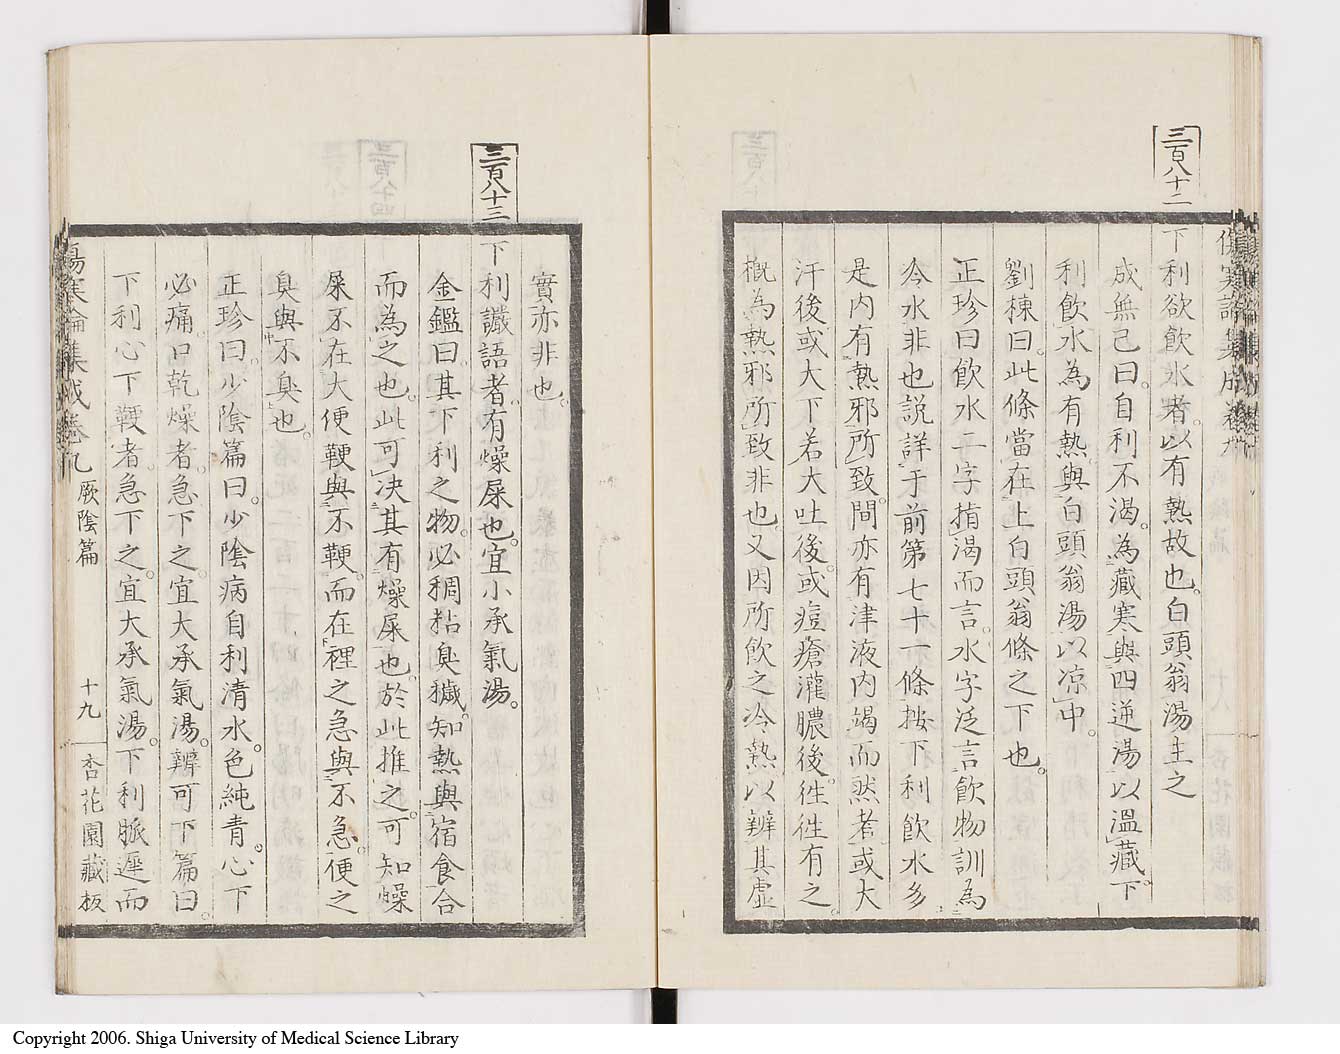 三百八十二
下利欲飲水者。以有熱故也。白頭翁湯主之
成無己曰。自利不渴。為藏寒與四逆湯以溫藏。下
利飲水為有熱。與白頭翁湯以凉中。
劉棟曰。此條當在上白頭翁條之下也。
正珍曰飲水二字指渴而言。水字泛言飲物訓為
冷水非也說詳于前第七十一條按下利飲水多
是内有熱邪所致。間亦有津液内竭而然者或大
汗後或大下若大吐後。或痘瘡灌膿後。徃徃有之。
概為熱邪所致非也。又因所飲之冷熱以辨其虛
三百八十三
實亦非也。
下利讝語者。有燥屎也。宜小承氣湯。
金鑑曰。其下利之物。必稠粘臭穢。知熱與宿食合
而為之也。此可决其有燥屎也。於此推之。可知燥
屎不在大便鞕與不鞕。而在裡之急與不急。便之
臭與不臭也。
正珍曰。少陰篇曰。少陰病自利清水。色純青。心下
必痛。口乾燥者。急下之。宜大承氣湯。辨可下篇曰。
下利心下鞕者。急下之。宜大承氣湯。下利脈遲而
傷寒論集成卷九 厥陰篇 十九 杏花園藏板
Copyright 2006. Shiga University of Medical Science Library